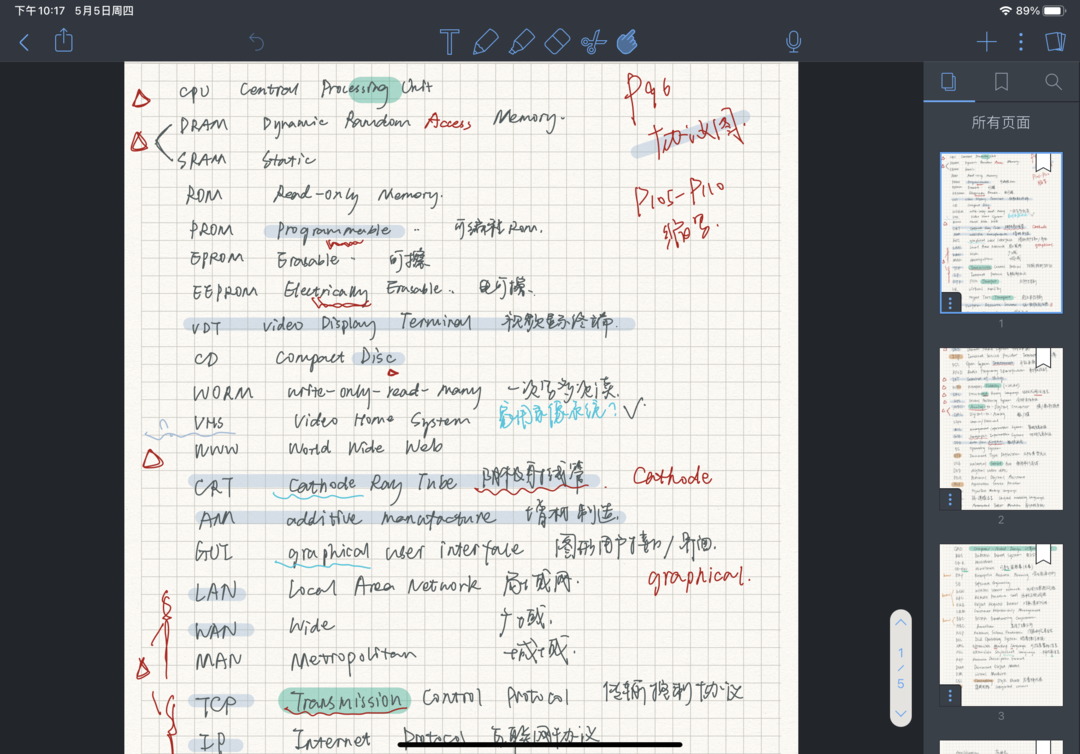 下午10:17 5月5日周四
89%
T
CPU Central Processing Unit
P96
DRAM Dynamic Random Access Memory.
协议图
SRAM Static
ROM Read-only Memory.
P105-P110
PROM Programmable .. 可编程Rom.
缩写.
EPROM Erasable .. 可擦
EEPROM Electrically Erasable .. 电可擦.
VDT Video Display Terminal 视频显示终端.
CD Compact Disc
WORM write-only-read-many 一次写多次读.
VHS Video Home System 家用录像系统? √
WWW World Wide Web
CRT Cathode Ray Tube 阴极射线管. Cathode
AM additive manufacture 增材制造.
GUI graphical user interface 图形用户接口/界面.
graphical.
LAN Local Area Network 局域网
WAN Wide 广域.
MAN Metropolitan 城域.
TCP Transmission Control Protocol 传输控制协议
IP Internet Protocol 互联网协议
所有页面
1
2
3
1
/
5